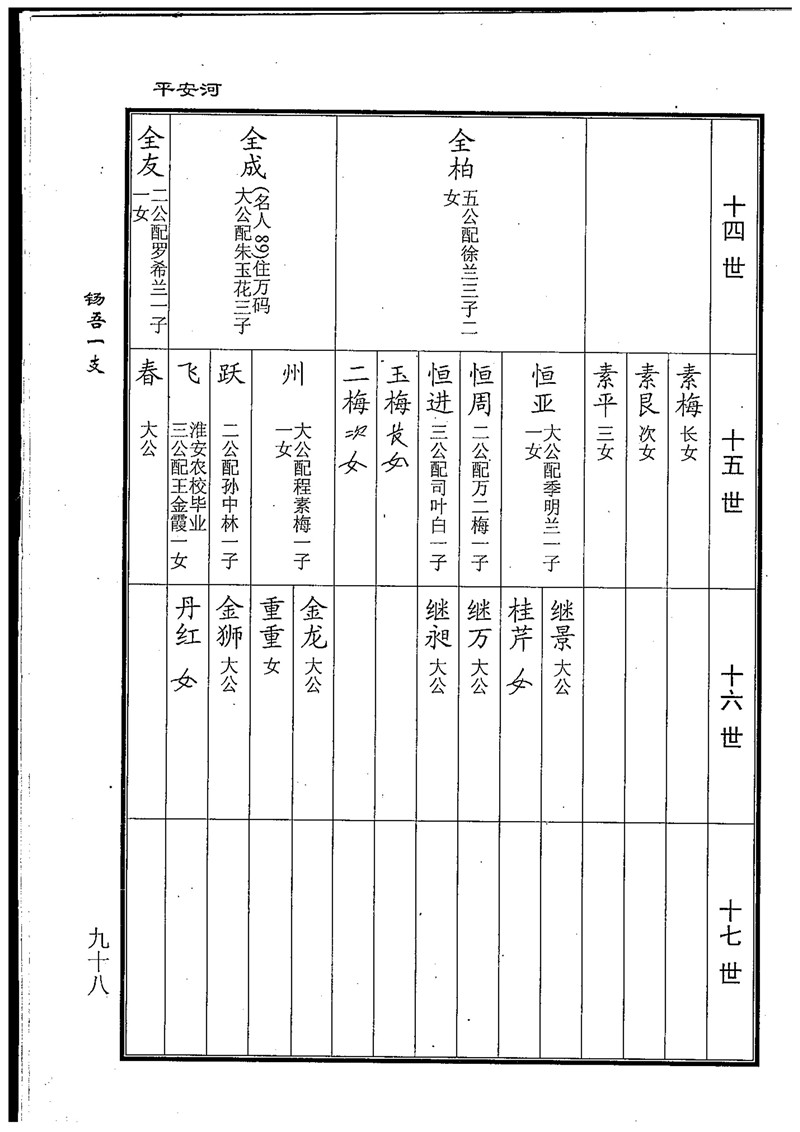 平安河
十四世
全柏
五公配徐兰三子二
女
全成
(名人89)住万码
大公配朱玉花三子
全友
二公配罗希兰一子
一女
十五世
素梅
长女
素艮
次女
素平
三女
恒亚
大公配季明兰一子
一女
恒周
二公配万二梅一子
恒进
三公配司叶白一子
玉梅
长女
二梅
次女
州
大公配程素梅一子
一女
跃
二公配孙中林一子
飞
淮安农校毕业
三公配王金霞一女
春
大公
十六世
继景
大公
桂芹
女
继万
大公
继昶
大公
金龙
大公
重重
女
金狮
大公
丹红
女
十七世
吾一支
九十八